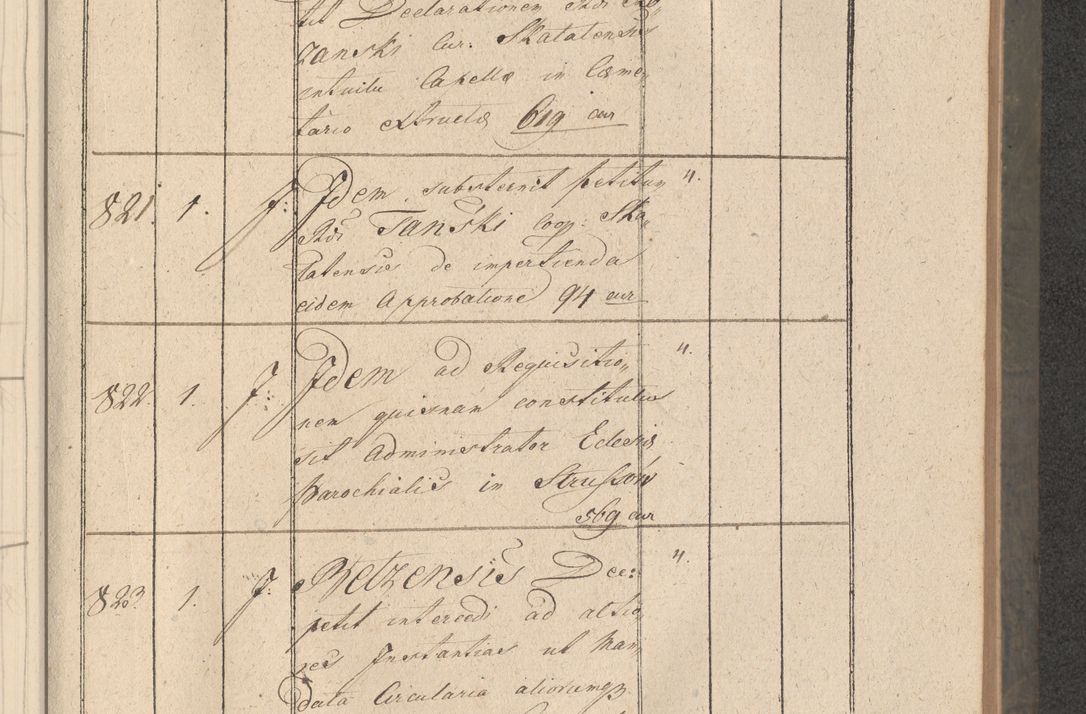 tit Declarationem Rdi
zanski Cur. Skalatensis
intuitu Capellæ in Cæme„
tario extructæ 619 cur
821. 1. J: Idem substernit petitum 4.
Rdi Tanski Coop. Ska„
latensis de impertienda
eidem Approbatione 94 cur
822. 1. J: Idem ad Requisitio„ 4.
nem quisnam constitutus
sit Administrator Eclesiæ
Parochialis in Strussów
569 cur
823. 1. J: Betzensis Dec: 4.
petit intercedi ad altio„
res Instantias ut Man„
data Circularia aliorumq3